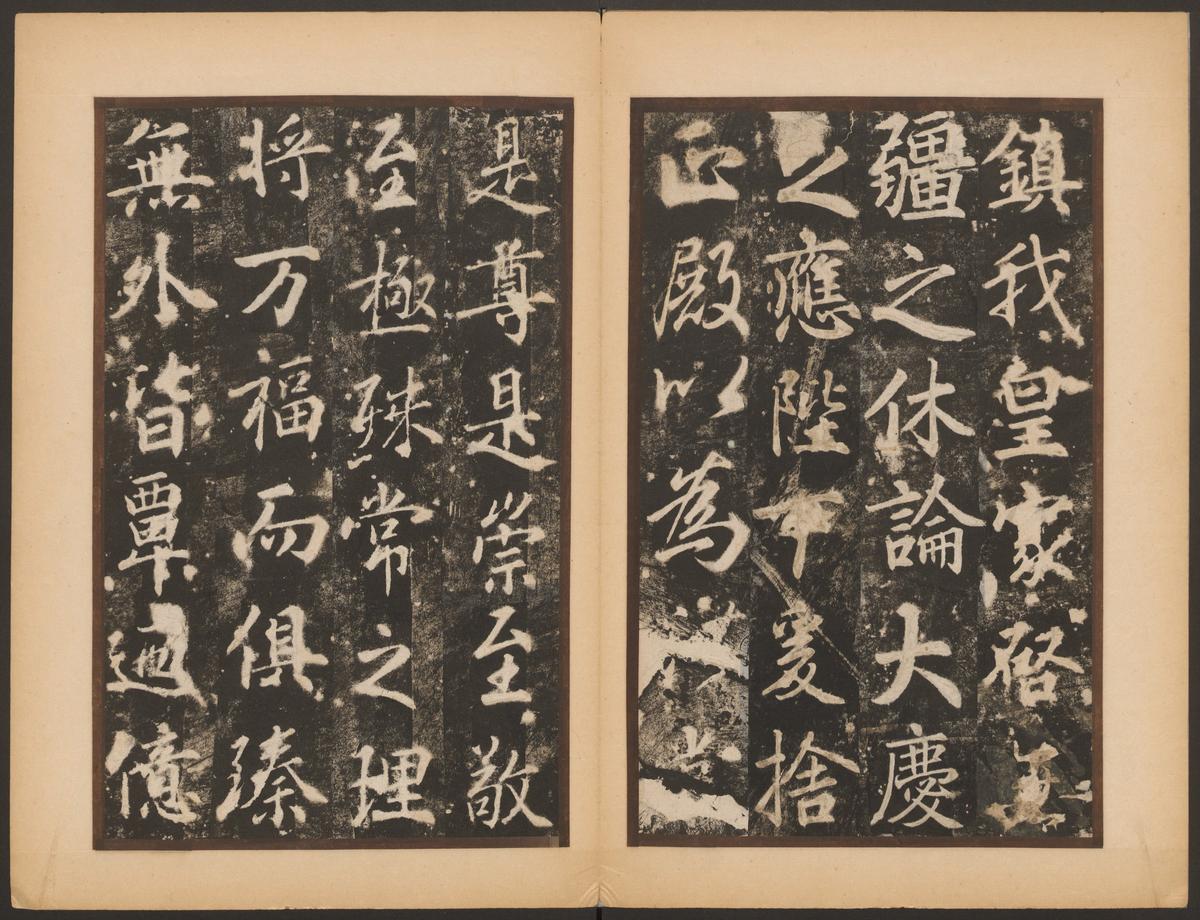 鎮我皇家啓
疆之休論大慶
之應陛下爰捨
正殿以為
是尊是崇至敬
至極殊常之理
将万福而俱臻
無外皆覃億